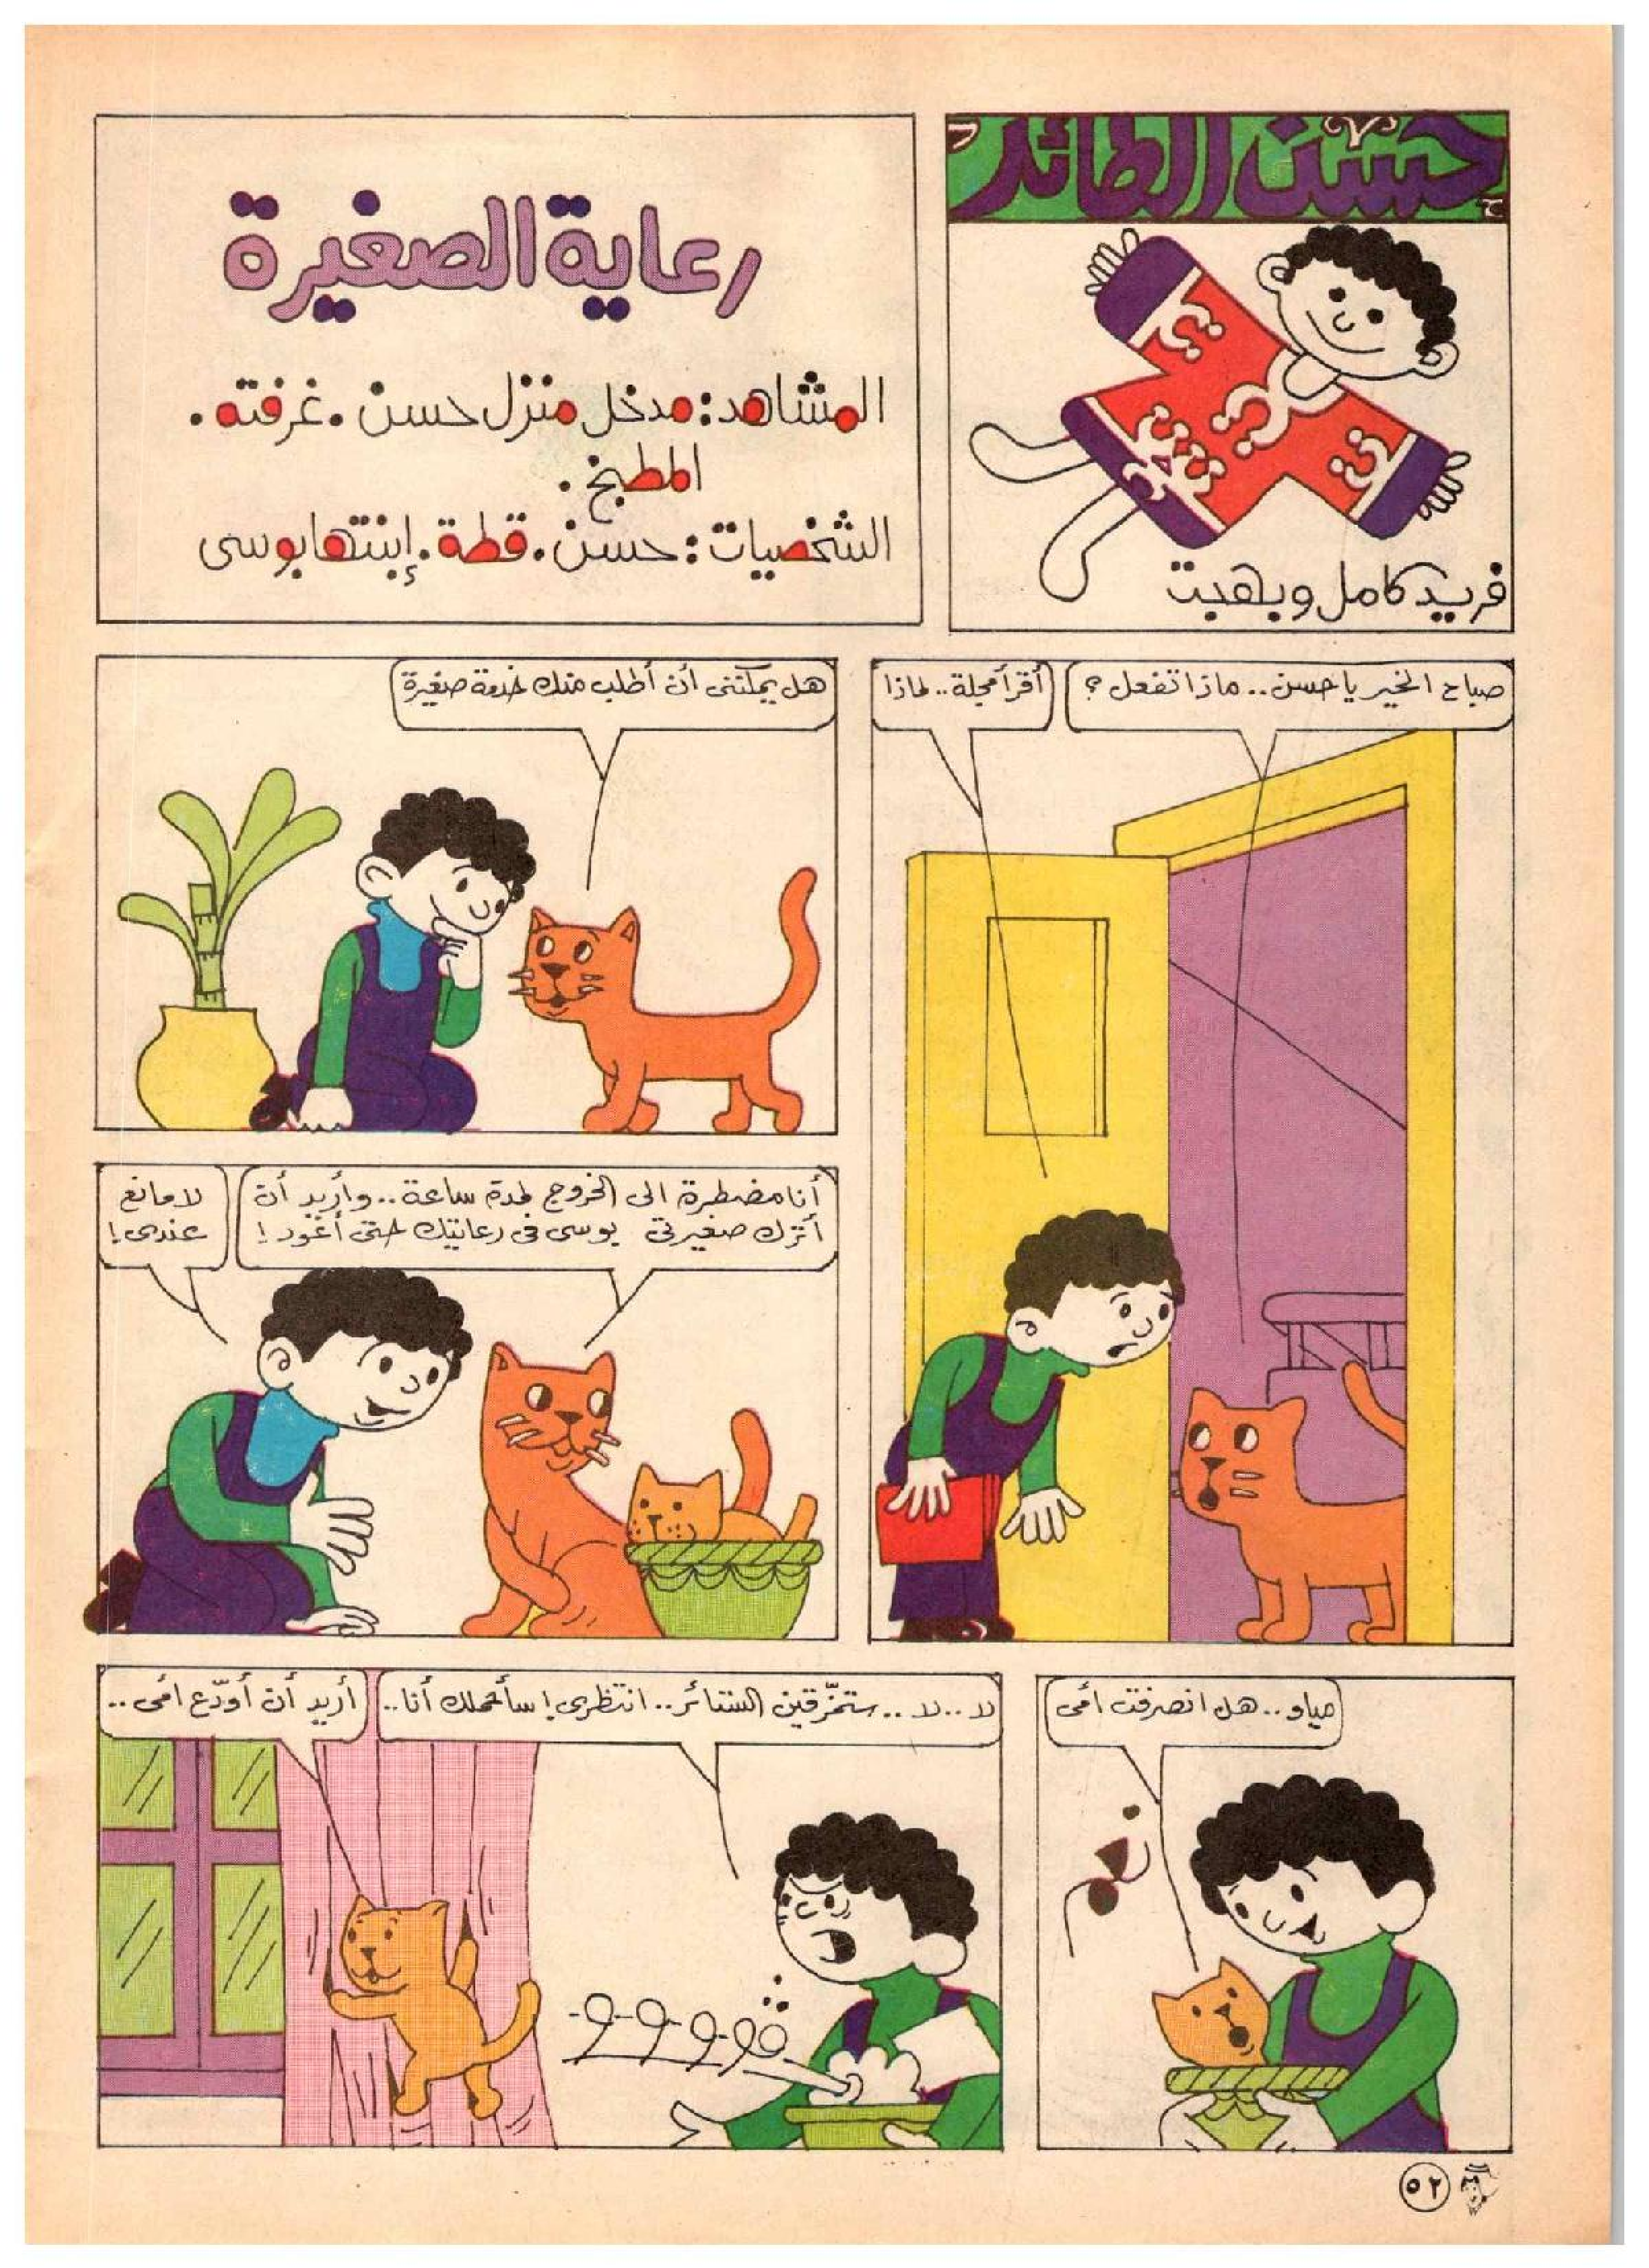 حسن الطائر
فريد كامل وبهجت
رعاية الصغيرة
المشاهد: مدخل منزل حسن. غرفته.
المطبخ.
الشخصيات: حسن. قطة. إبنتها بوسى
صباح الخير يا حسن.. ماذا تفعل؟
أقرأ مجلة.. لماذا
هل يمكننى أن أطلب منك خدمة صغيرة
أنا مضطرة الى الخروج لمدة ساعة.. وأريد أن
أترك صغيرتى بوسى فى رعايتك حتى أعود!
لا مانع
عندى!
مياو.. هل انصرفت أمى
لا.. لا.. ستمزّقين الستائر.. انتظرى! سأحملك أنا..
أريد أن أودّع أمى..
٥٢